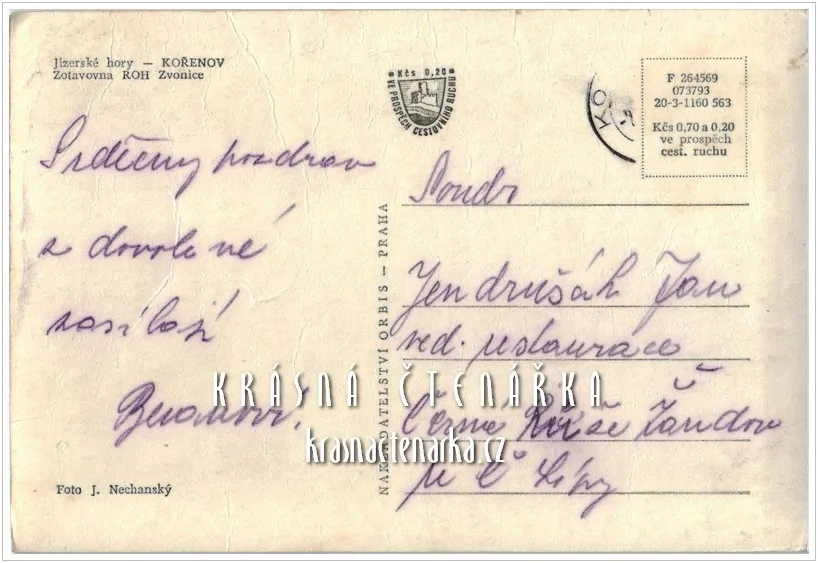 Jizerské hory – KOŘENOV
Zotavovna ROH Zvonice
Kčs 0,20
VE PROSPĚCH CESTOVNÍHO RUCHU
KO
F 264569
073793
20-3-1160 563
Kčs 0,70 a 0,20
ve prospěch
cest. ruchu
Srdečný pozdrav
z dovolené
zasílají
NAKLADATELSTVÍ ORBIS – PRAHA
Soudr
Jendrušák Jan
ved. restaurace
Černé Růže Žandov
u Č Lípy
KRÁSNÁ ČTENÁŘKA
krasnactenarka.cz
Foto J. Nechanský